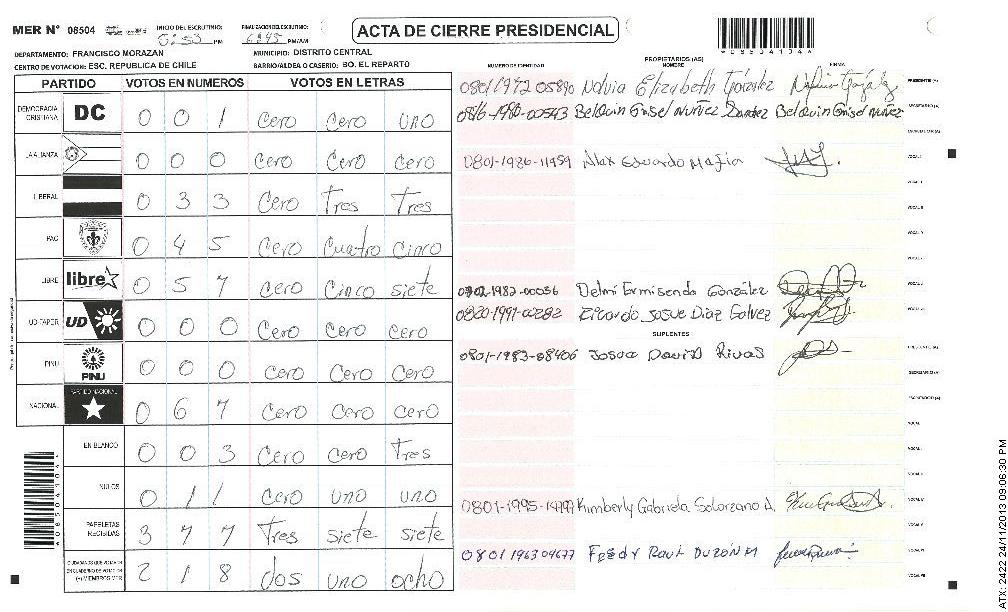 MER Nº 08504 INICIO DEL ESCRUTINIO: 5:53 PM FINALIZACION DEL ESCRUTINIO: 6:45 PM/AM ACTA DE CIERRE PRESIDENCIAL
DEPARTAMENTO: FRANCISCO MORAZAN MUNICIPIO: DISTRITO CENTRAL
CENTRO DE VOTACION: ESC. REPUBLICA DE CHILE BARRIO/ALDEA O CASERIO: BO. EL REPARTO
NUMERO DE IDENTIDAD PROPIETARIOS (AS) NOMBRE FIRMA
PARTIDO VOTOS EN NUMEROS VOTOS EN LETRAS
DEMOCRACIA CRISTIANA DC 0 0 1 Cero Cero uno
LA ALIANZA 0 0 0 Cero Cero Cero
LIBERAL 0 3 3 Cero Tres Tres
PAC 0 4 5 Cero Cuatro Cinco
LIBRE libre 0 5 7 Cero Cinco siete
UD-FAPER UD 0 0 0 Cero Cero Cero
PINU PINU 0 0 0 Cero Cero Cero
NACIONAL PARTIDO NACIONAL 0 6 7 Cero Cero Cero
EN BLANCO 0 0 3 Cero Cero Tres
NULOS 0 1 1 Cero uno uno
PAPELETAS RECIBIDAS 3 7 7 Tres siete siete
2 1 8 dos uno ocho
0801 1972 05890 Nolvia Elizabeth González PRESIDENTE (A)
0816-1980-00543 Belquin Grisel Nuñez Belquin Grisel Nuñez SECRETARIO (A)
0801-1986-11959 Alex Eduardo Mafia VOCAL I
0702-1982-00056 Delmi Ermisenda González
0820-1991-00282 Ricardo Josue Diaz Galvez
SUPLENTES
0801-1983-08406 Josue David Rivas PRESIDENTE (A)
SECRETARIO (A)
0801-1995- Kimberly Gabriela Solorzano A.
0801 1963 04677 Fredy Raul
ATX: 2422 24/11/2013 09:06:30 PM